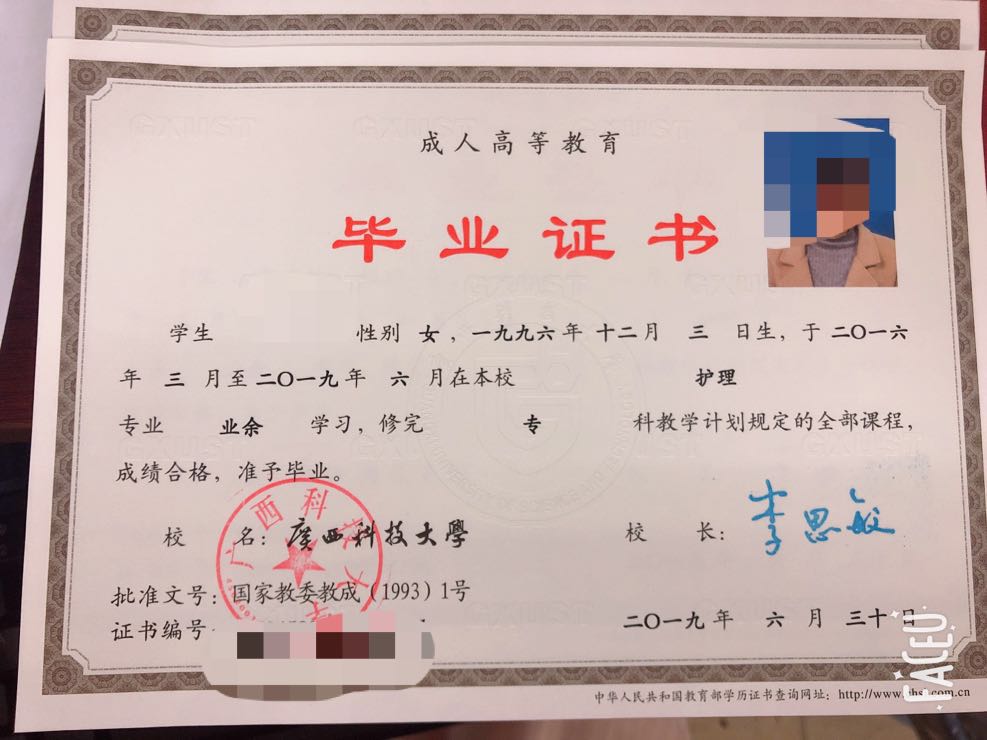 成人高等教育
毕业证书
学生 性别 女，一九九六年 十二月 三 日生，于二〇一六
年 三 月至二〇一九年 六 月在本校 护理
专业 业余 学习，修完 专 科教学计划规定的全部课程，
成绩合格，准予毕业。
校 名：廣西科技大學 校 长：李思敏
广西科技大学
批准文号：国家教委教成（1993）1号
证书编号 二〇一九年 六 月 三十日
中华人民共和国教育部学历证书查询网址：http://www.chsi.com.cn
FACEU
GXUST GXUST GXUST